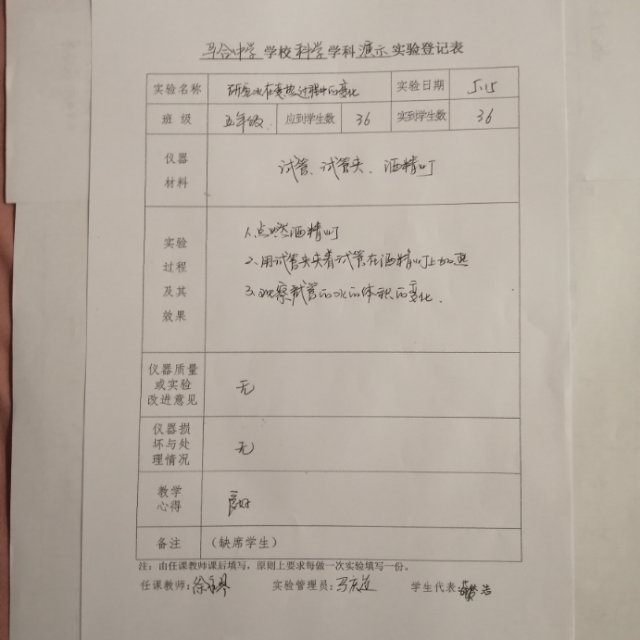 马合中学 学校 科学 学科 演示 实验登记表
实验名称 研究水在变热过程中的变化 实验日期 5.15
班 级 五年级 应到学生数 36 实到学生数 36
仪器
材料
试管、试管夹、酒精灯
实验
过程
及其
效果
1、点燃酒精灯
2、用试管夹夹着试管在酒精灯上加热
3、观察试管的水的体积的变化.
仪器质量
或实验
改进意见
无
仪器损
坏与处
理情况
无
教学
心得
良好
备注 (缺席学生)
注:由任课教师课后填写,原则上要求每做一次实验填写一份。
任课教师: 实验管理员: 学生代表: